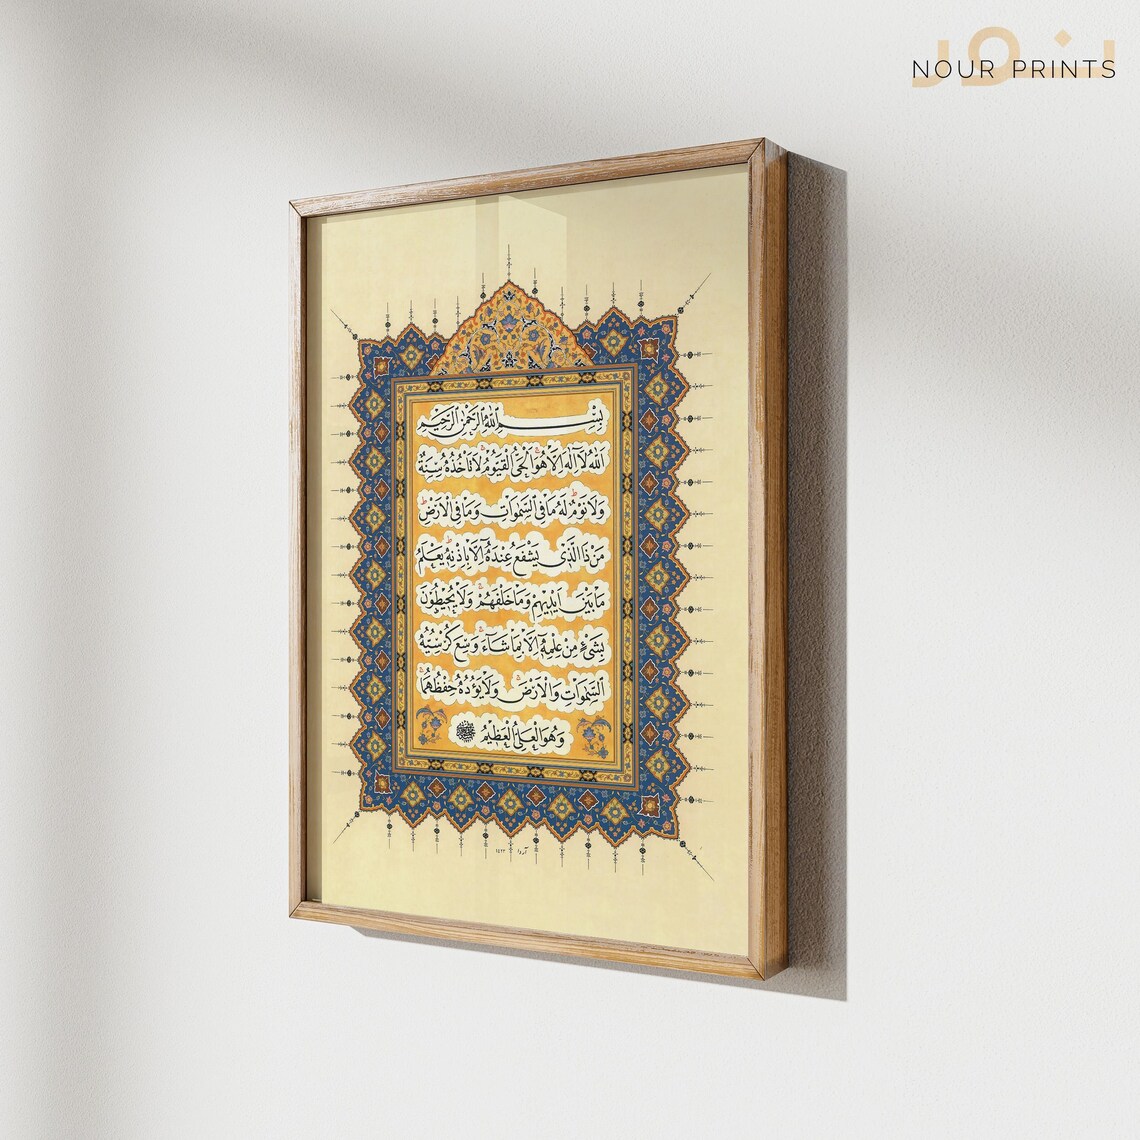 نور
NOUR PRINTS
بِسْمِ اللّٰهِ الرَّحْمٰنِ الرَّحِيْمِ
اَللّٰهُ لَٓا اِلٰهَ اِلَّا هُوَۚ اَلْحَيُّ الْقَيُّومُۚ لَا تَأْخُذُهُ سِنَةٌ
وَلَا نَوْمٌۜ لَهُ مَا فِي السَّمٰوَاتِ وَمَا فِي الْاَرْضِۜ
مَنْ ذَا الَّذ۪ي يَشْفَعُ عِنْدَهُٓ اِلَّا بِاِذْنِه۪ۜ يَعْلَمُ
مَا بَيْنَ اَيْد۪يهِمْ وَمَا خَلْفَهُمْۚ وَلَا يُح۪يطُونَ
بِشَيْءٍ مِنْ عِلْمِه۪ٓ اِلَّا بِمَا شَٓاءَۚ وَسِعَ كُرْسِيُّهُ
السَّمٰوَاتِ وَالْاَرْضَۚ وَلَا يَؤُ۫دُهُ حِفْظُهُمَاۚ
وَهُوَ الْعَلِيُّ الْعَظ۪يمُ